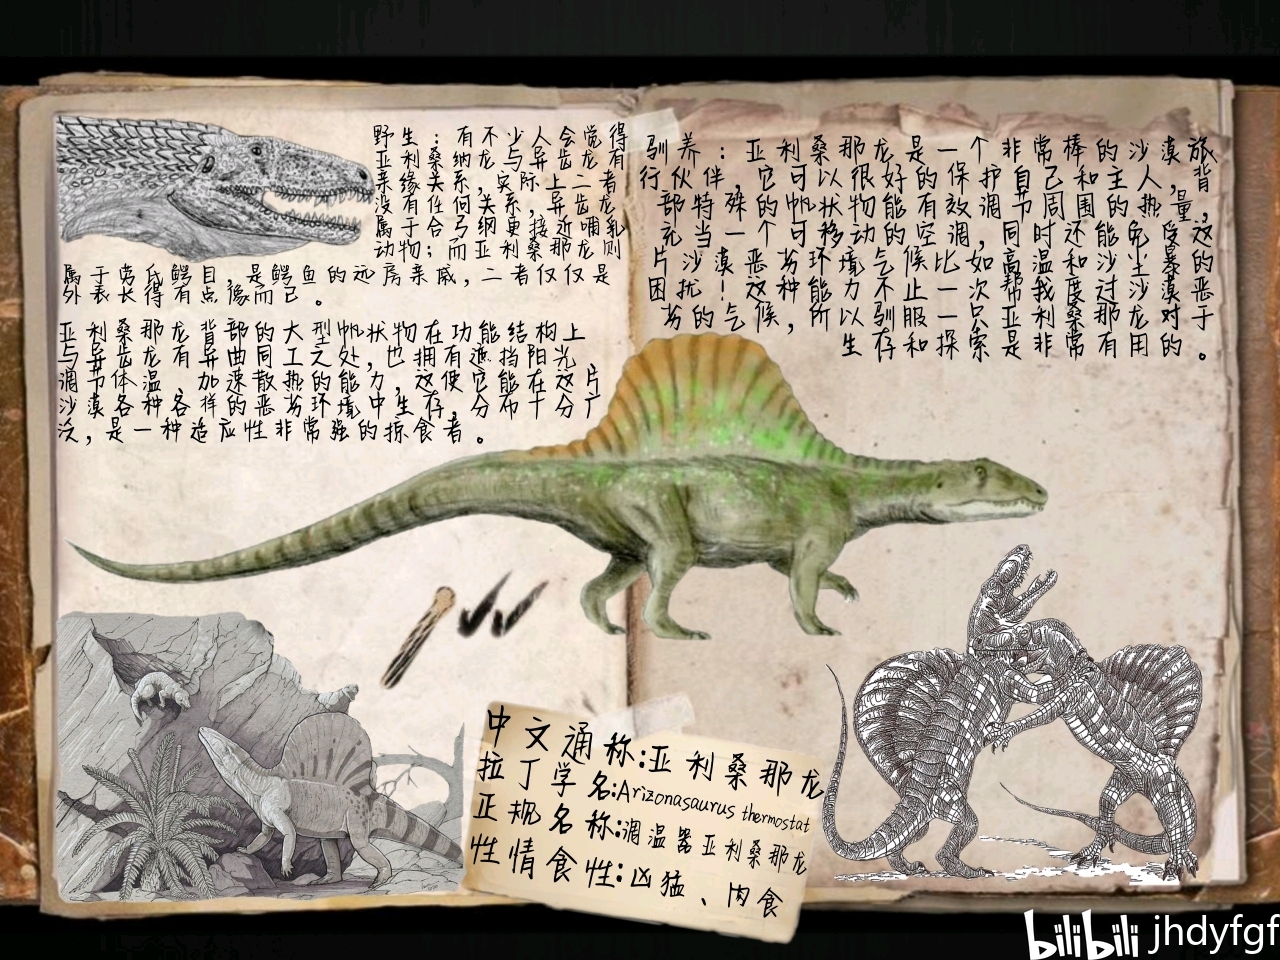 野生：有不少人会觉得
亚利桑纳龙与异齿龙有
亲缘关系，实际上二者
没有任何关系，异齿龙
属于合弓纲更接近哺乳
动物；而亚利桑那龙则
属于劳氏鳄目，是鳄鱼的远房亲戚，二者仅仅是
外表长得有点像而已。
亚利桑那龙背部的大型帆状物在功能结构上
与异齿龙有异曲同工之处，也拥有遮挡阳光、
调节体温、加速散热的能力，这使它能在这片
沙漠各种各样的恶劣环境中生存，分布十分广
泛，是一种适应性非常强的掠食者。
驯养：亚利桑那龙是一个非常棒的沙漠旅
行伙伴，它可以很好的保护自己和主人，背
部特殊的帆状物能有效调节周围的热量，
充当一个可移动的空调，同时还能免受这
片沙漠恶劣环境气候比如高温和沙尘暴的
困扰！这种能力不止一次帮我度过沙漠恶
劣的气候，所以驯服一只亚利桑那龙对于
生存和探索是非常有用的。
中文通称:亚利桑那龙
拉丁学名:Arizonasaurus thermostat
正规名称:调温器亚利桑那龙
性情食性:凶猛、肉食
bilibili jhdyfgf